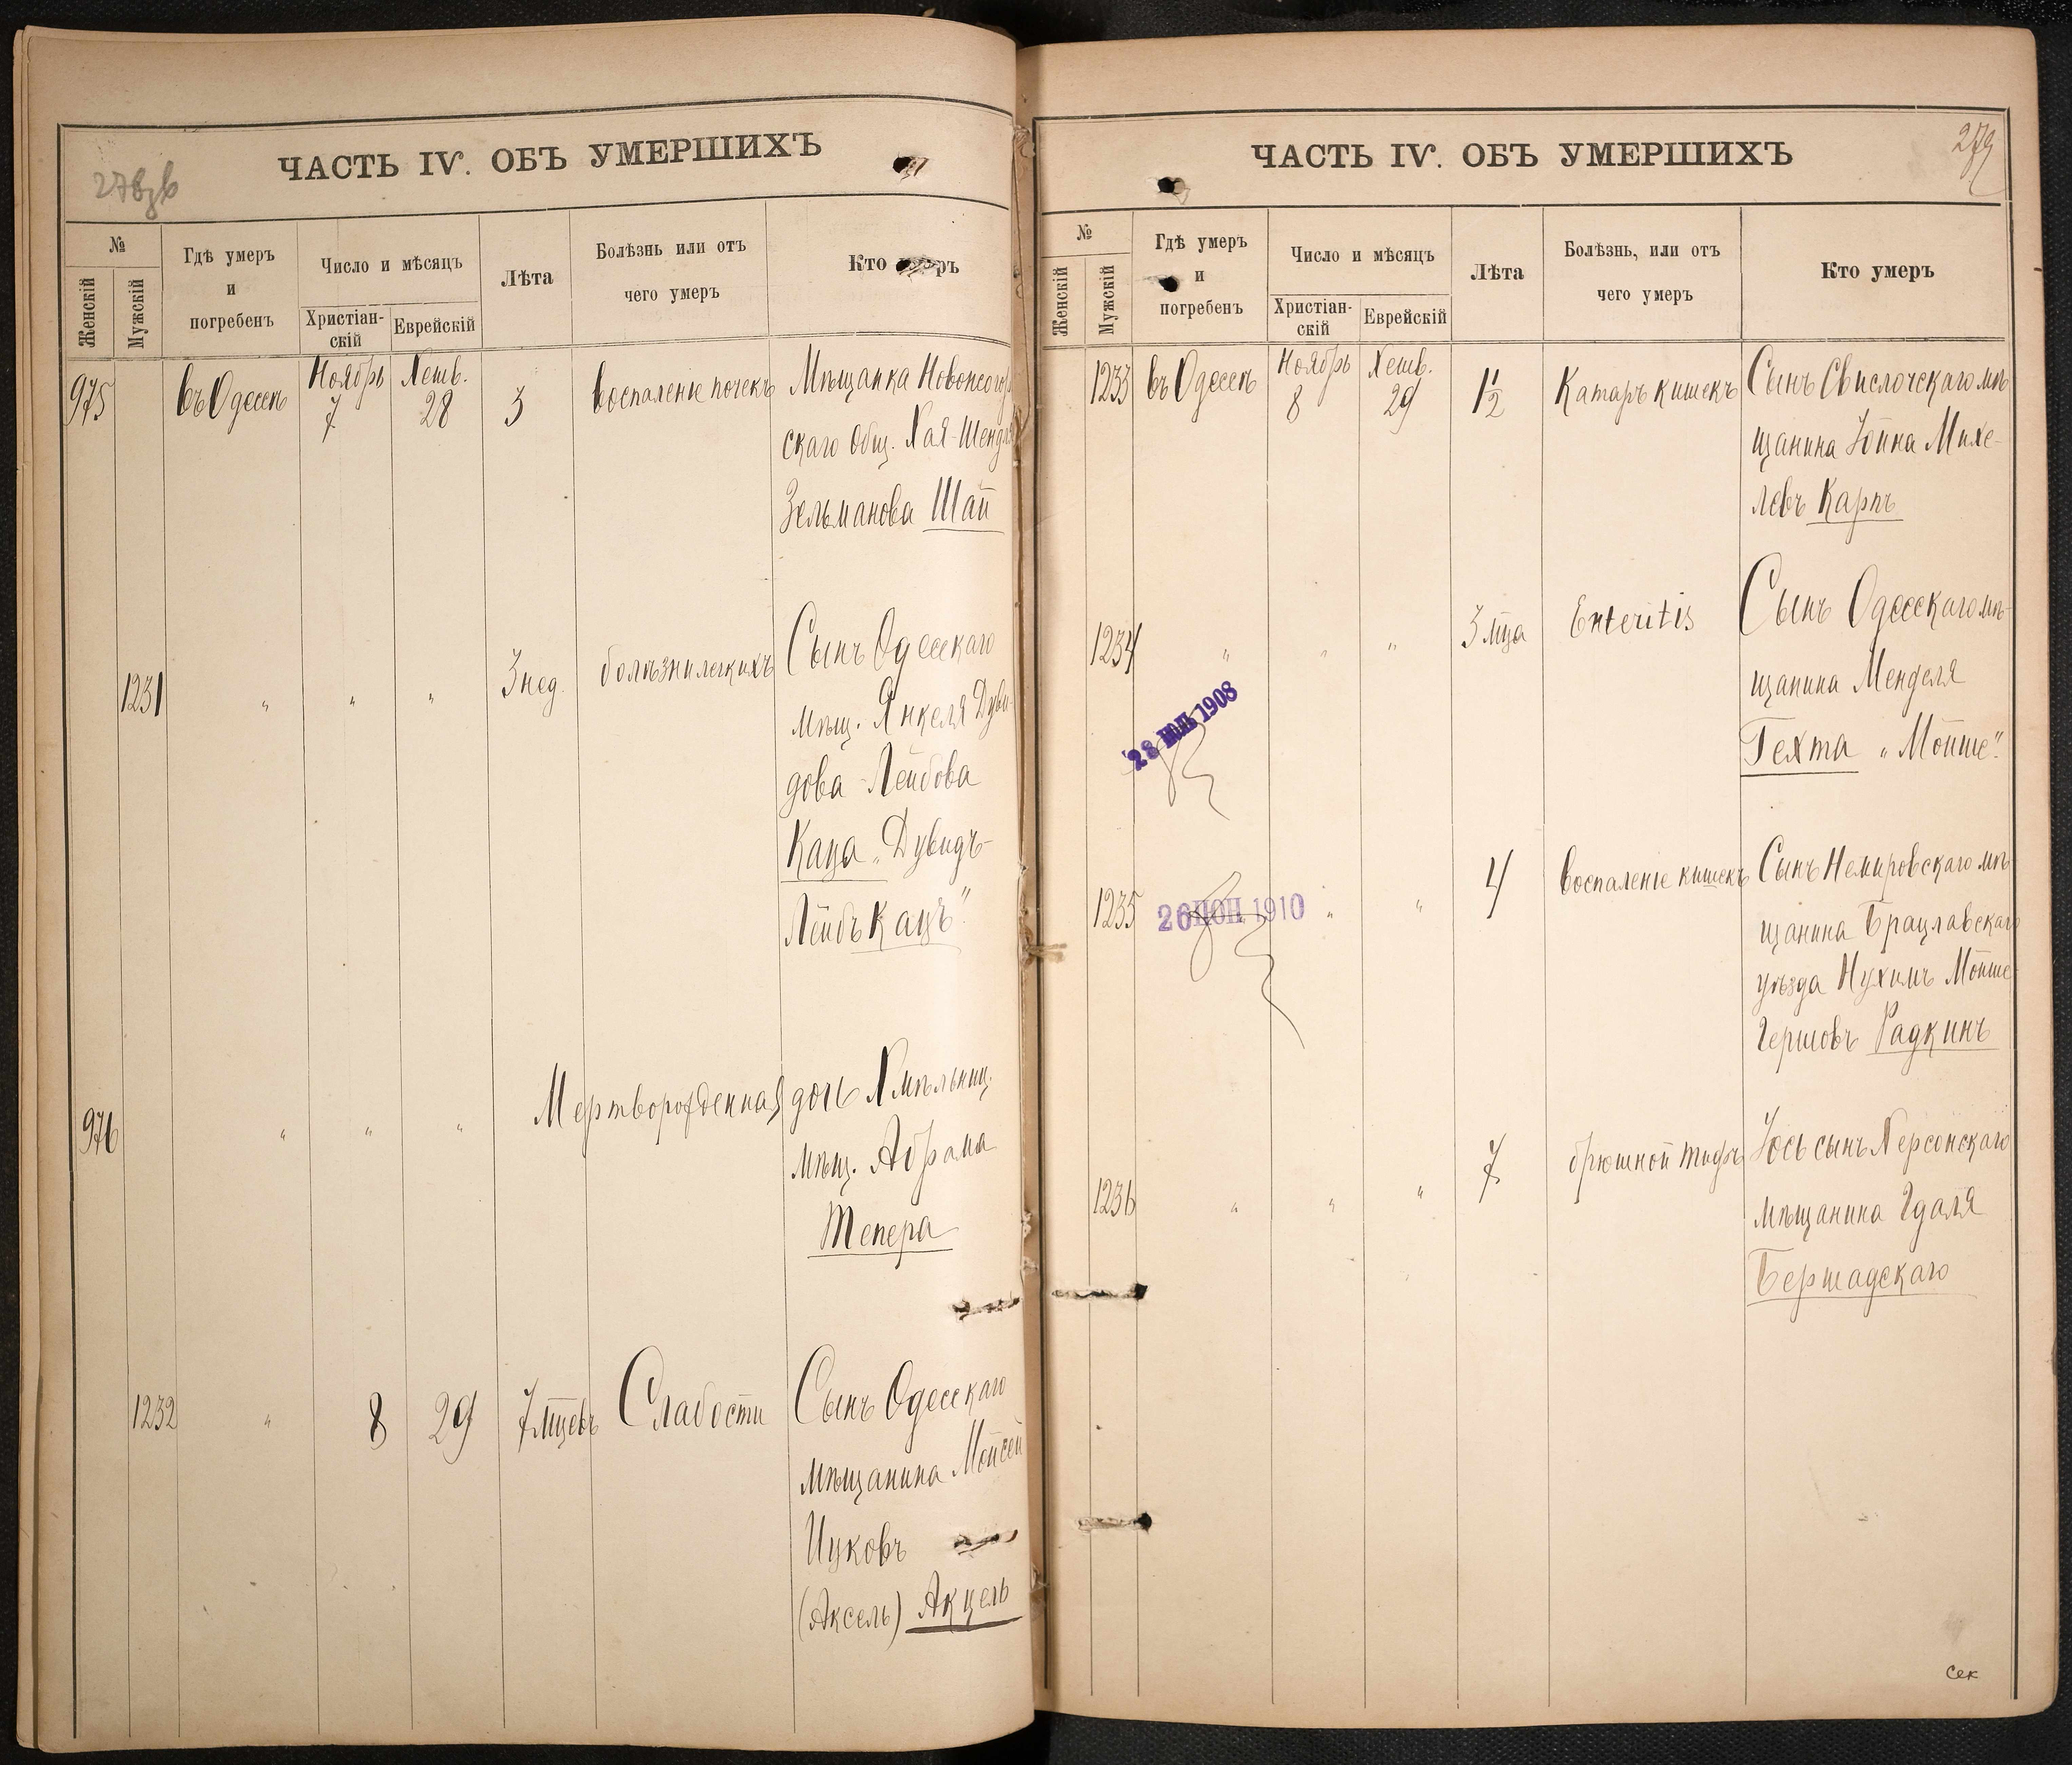 ЧАСТЬ IV. ОБЪ УМЕРШИХЪ
№
Женскій
Мужскій
Гдѣ умеръ
и
погребенъ
Число и мѣсяцъ
Христіан-
скій
Еврейскій
Лѣта
Болѣзнь или отъ
чего умеръ
Кто
975
въ Одессѣ
Ноябрь
7
Хешв.
28
3
воспаленіе почекъ
Мѣщанка
скаго Общ. Хая-Шендля
Зельманова Шац
1231
" " "
3 нед.
болѣзни легкихъ
Сынъ Одесскаго
мѣщ. Янкеля Дуви-
дова-Лейбова
Каца „Дувидъ-
Лейбъ Кацъ"
976
" " "
Мертворожденная
дочь Хмѣльниц.
мѣщ. Абрама
Тепера
1232
"
8
29
7 мцевъ
Слабости
Сынъ Одесскаго
мѣщанина Мойсей
Ицковъ
(Аксель) Акцель
ЧАСТЬ IV. ОБЪ УМЕРШИХЪ
279
№
Женскій
Мужскій
Гдѣ умеръ
и
погребенъ
Число и мѣсяцъ
Христіан-
скій
Еврейскій
Лѣта
Болѣзнь, или отъ
чего умеръ
Кто умеръ
1233
въ Одессѣ
Ноябрь
8
Хешв.
29
1½
Катаръ кишекъ
Сынъ Свислочскаго мѣ-
щанина Іойна Михе-
левъ Карпъ
1234
" " "
3 мца
Enteritis
Сынъ Одесскаго мѣ-
щанина Менделя
Гехта „Мойше"
28 ИЮЛ 1908
1235
26 ІЮН 1910
" "
4
воспаленіе кишекъ
Сынъ Немировскаго мѣ-
щанина Брацлавскаго
уѣзда Нухимъ Мойше
Гершовъ Радкинъ
1236
" " "
7
брюшной тифъ
Іось сынъ Херсонскаго
мѣщанина Гдаля
Бершадскаго
Сек